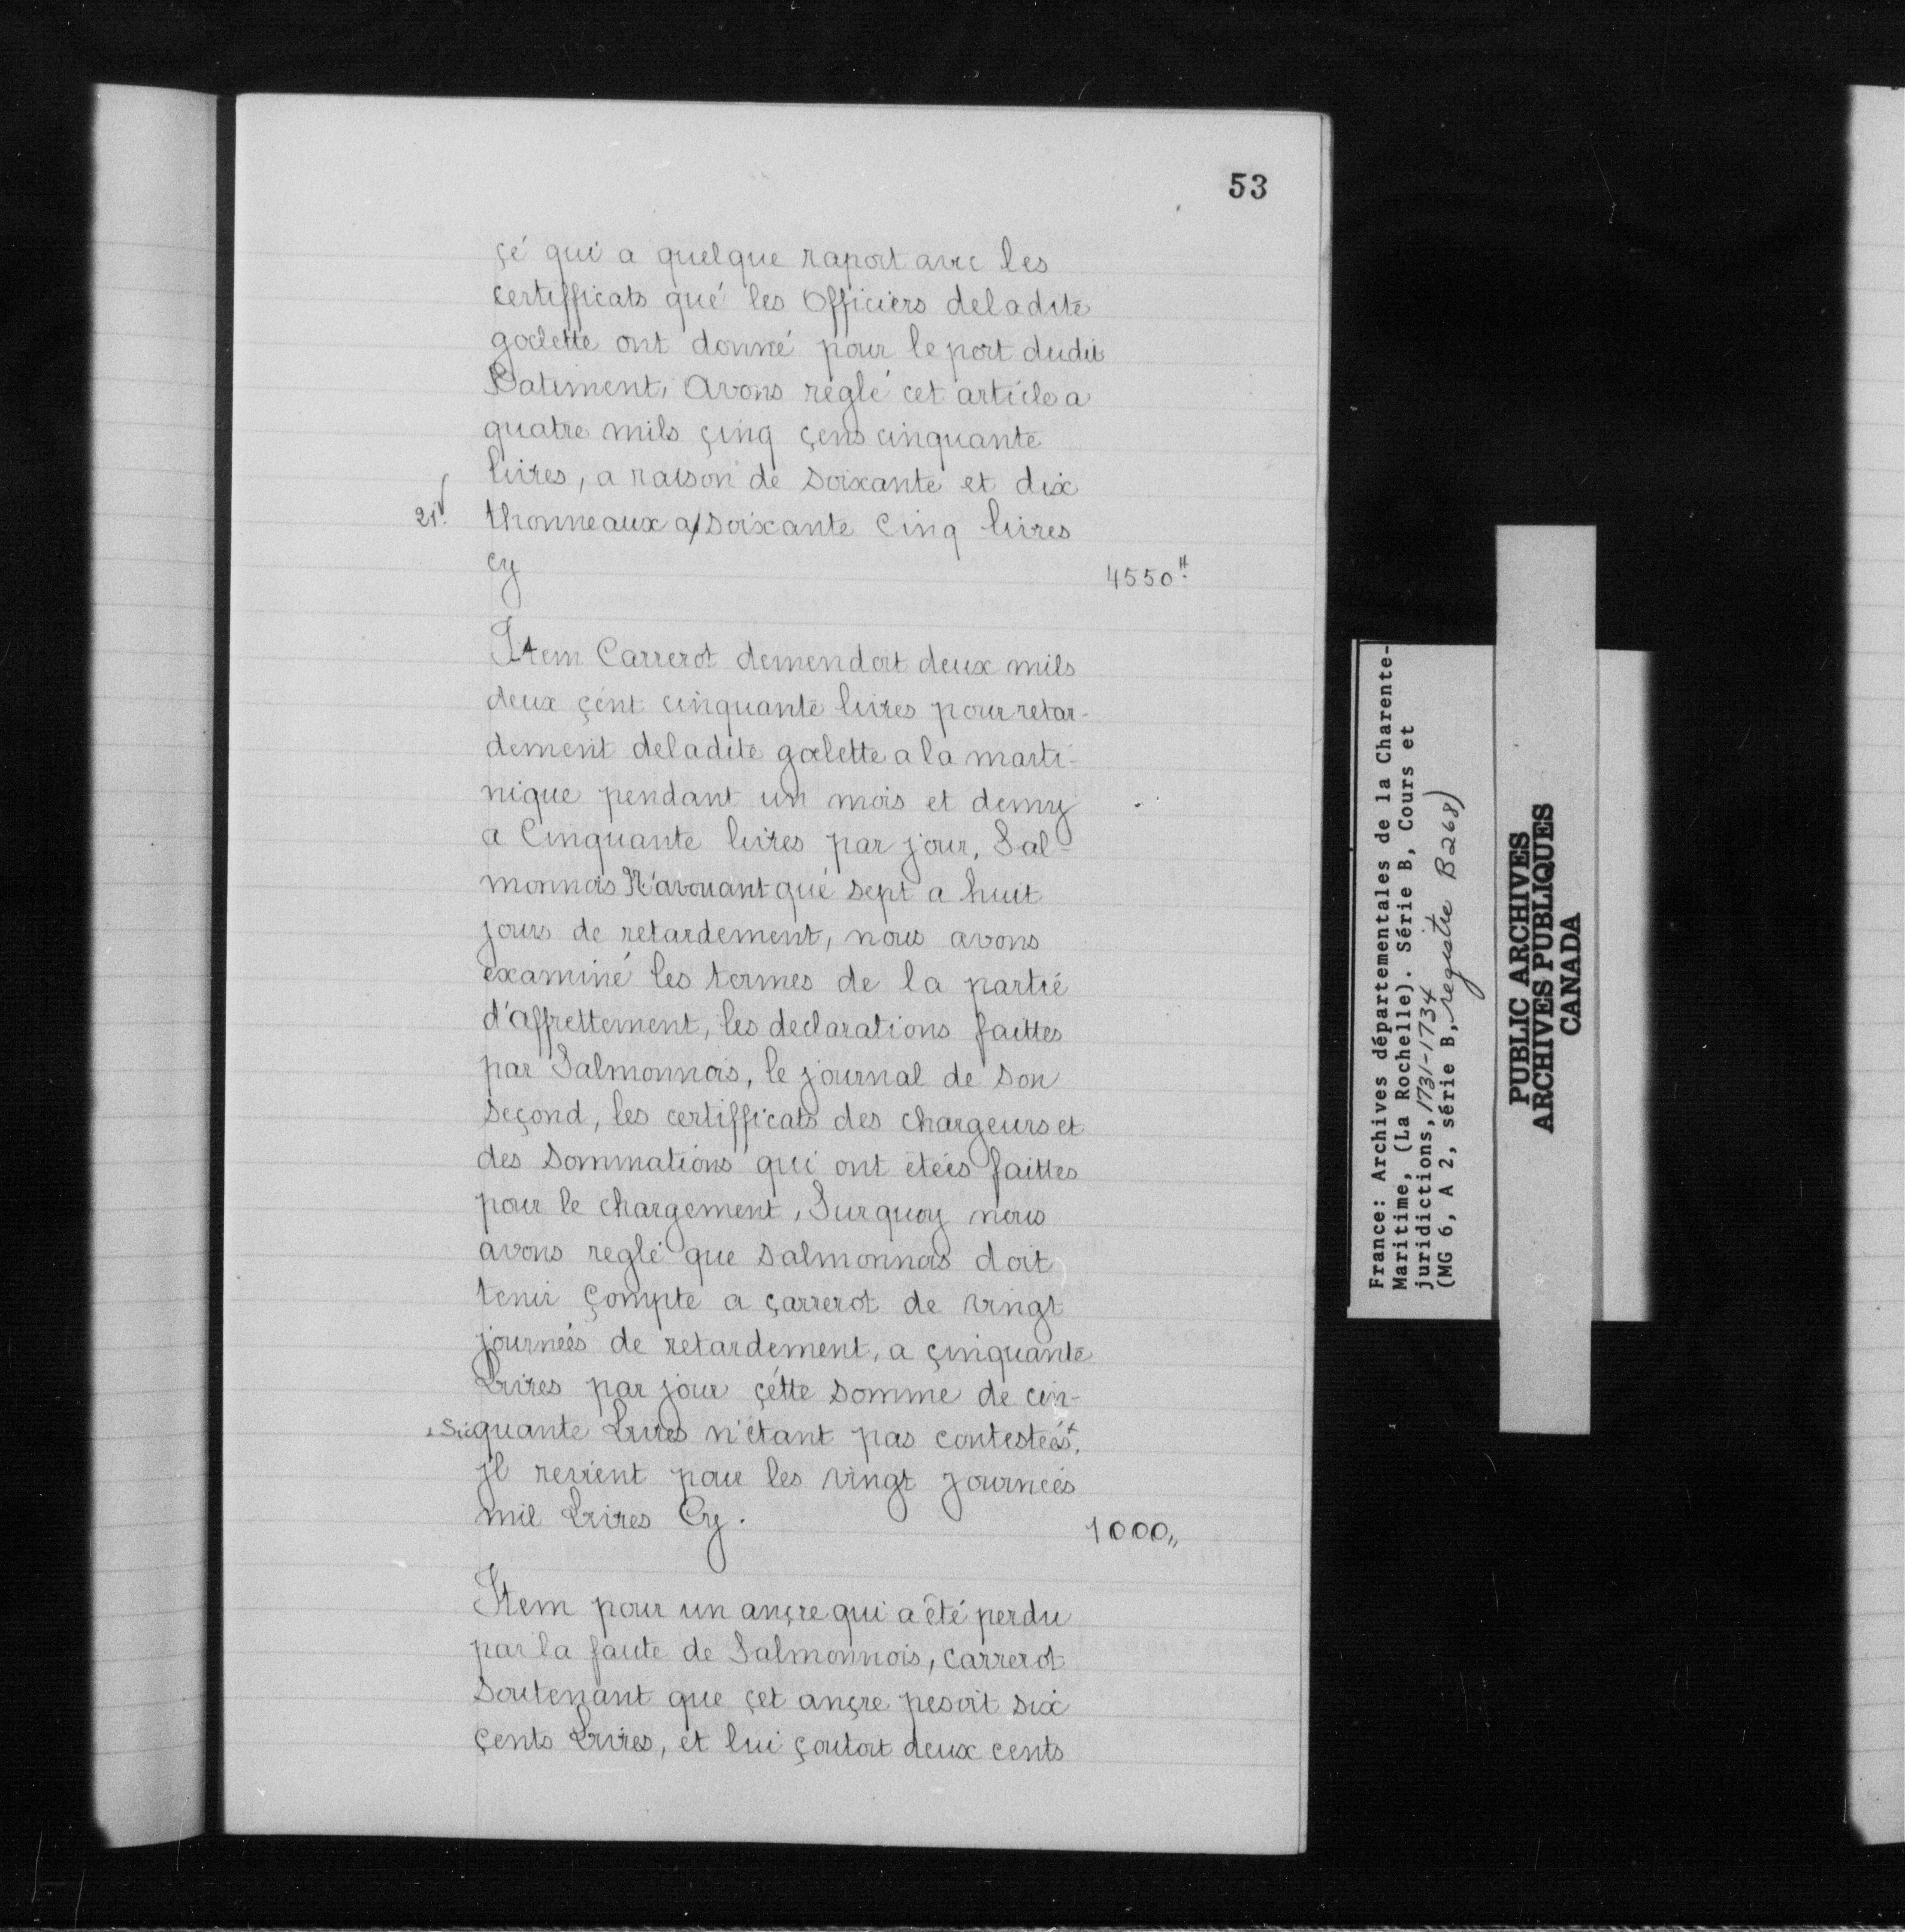 53
çé qui a quelque raport avec les
certifficats qué les Officiers deladite
goelette ont donné pour le port dudit
Batiment, Avons réglé cet article a
quatre mils çinq çens cinquante
livres, a raison de soixante et dix
21 v. thonneaux a/soixante Cinq livres
cy
4550#
Item Carrerot demendoit deux mils
deux çént cinquante livres pour retar-
dement deladite goelette a la marti-
nique pendant un mois et demy
a Cinquante livres par jour, Sal-
monnois N'avouant qué sept a huit
jours de retardement, nous avons
examiné les termes de la partié
d'affrettement, les declarations faittes
par Salmonnois, le journal de son
seçond, les certifficats des chargeurs et
des sommations qui ont étéés faittes
pour le chargement, Surquoy nous
avons reglé que salmonnois doit
tenir çompte a çarrerot de vingt
journéés de retardement, a çinquante
Livres par jour çétte somme de cin-
+Sic quante Livres n'étant pas contestéés+.
jl revient pour les vingt journéés
mil Livres Cy.
1000,,
Item pour un ançre qui a été perdu
par la faute de Salmonnois, carrerot
soutenant que çet ançre pesoit six
çents Livres, et lui çoutoit deux cents
France: Archives départementales de la Charente-
Maritime, (La Rochelle). Série B, Cours et
juridictions, 1731-1734
(MG 6, A 2, série B, registre B268)
PUBLIC ARCHIVES
ARCHIVES PUBLIQUES
CANADA